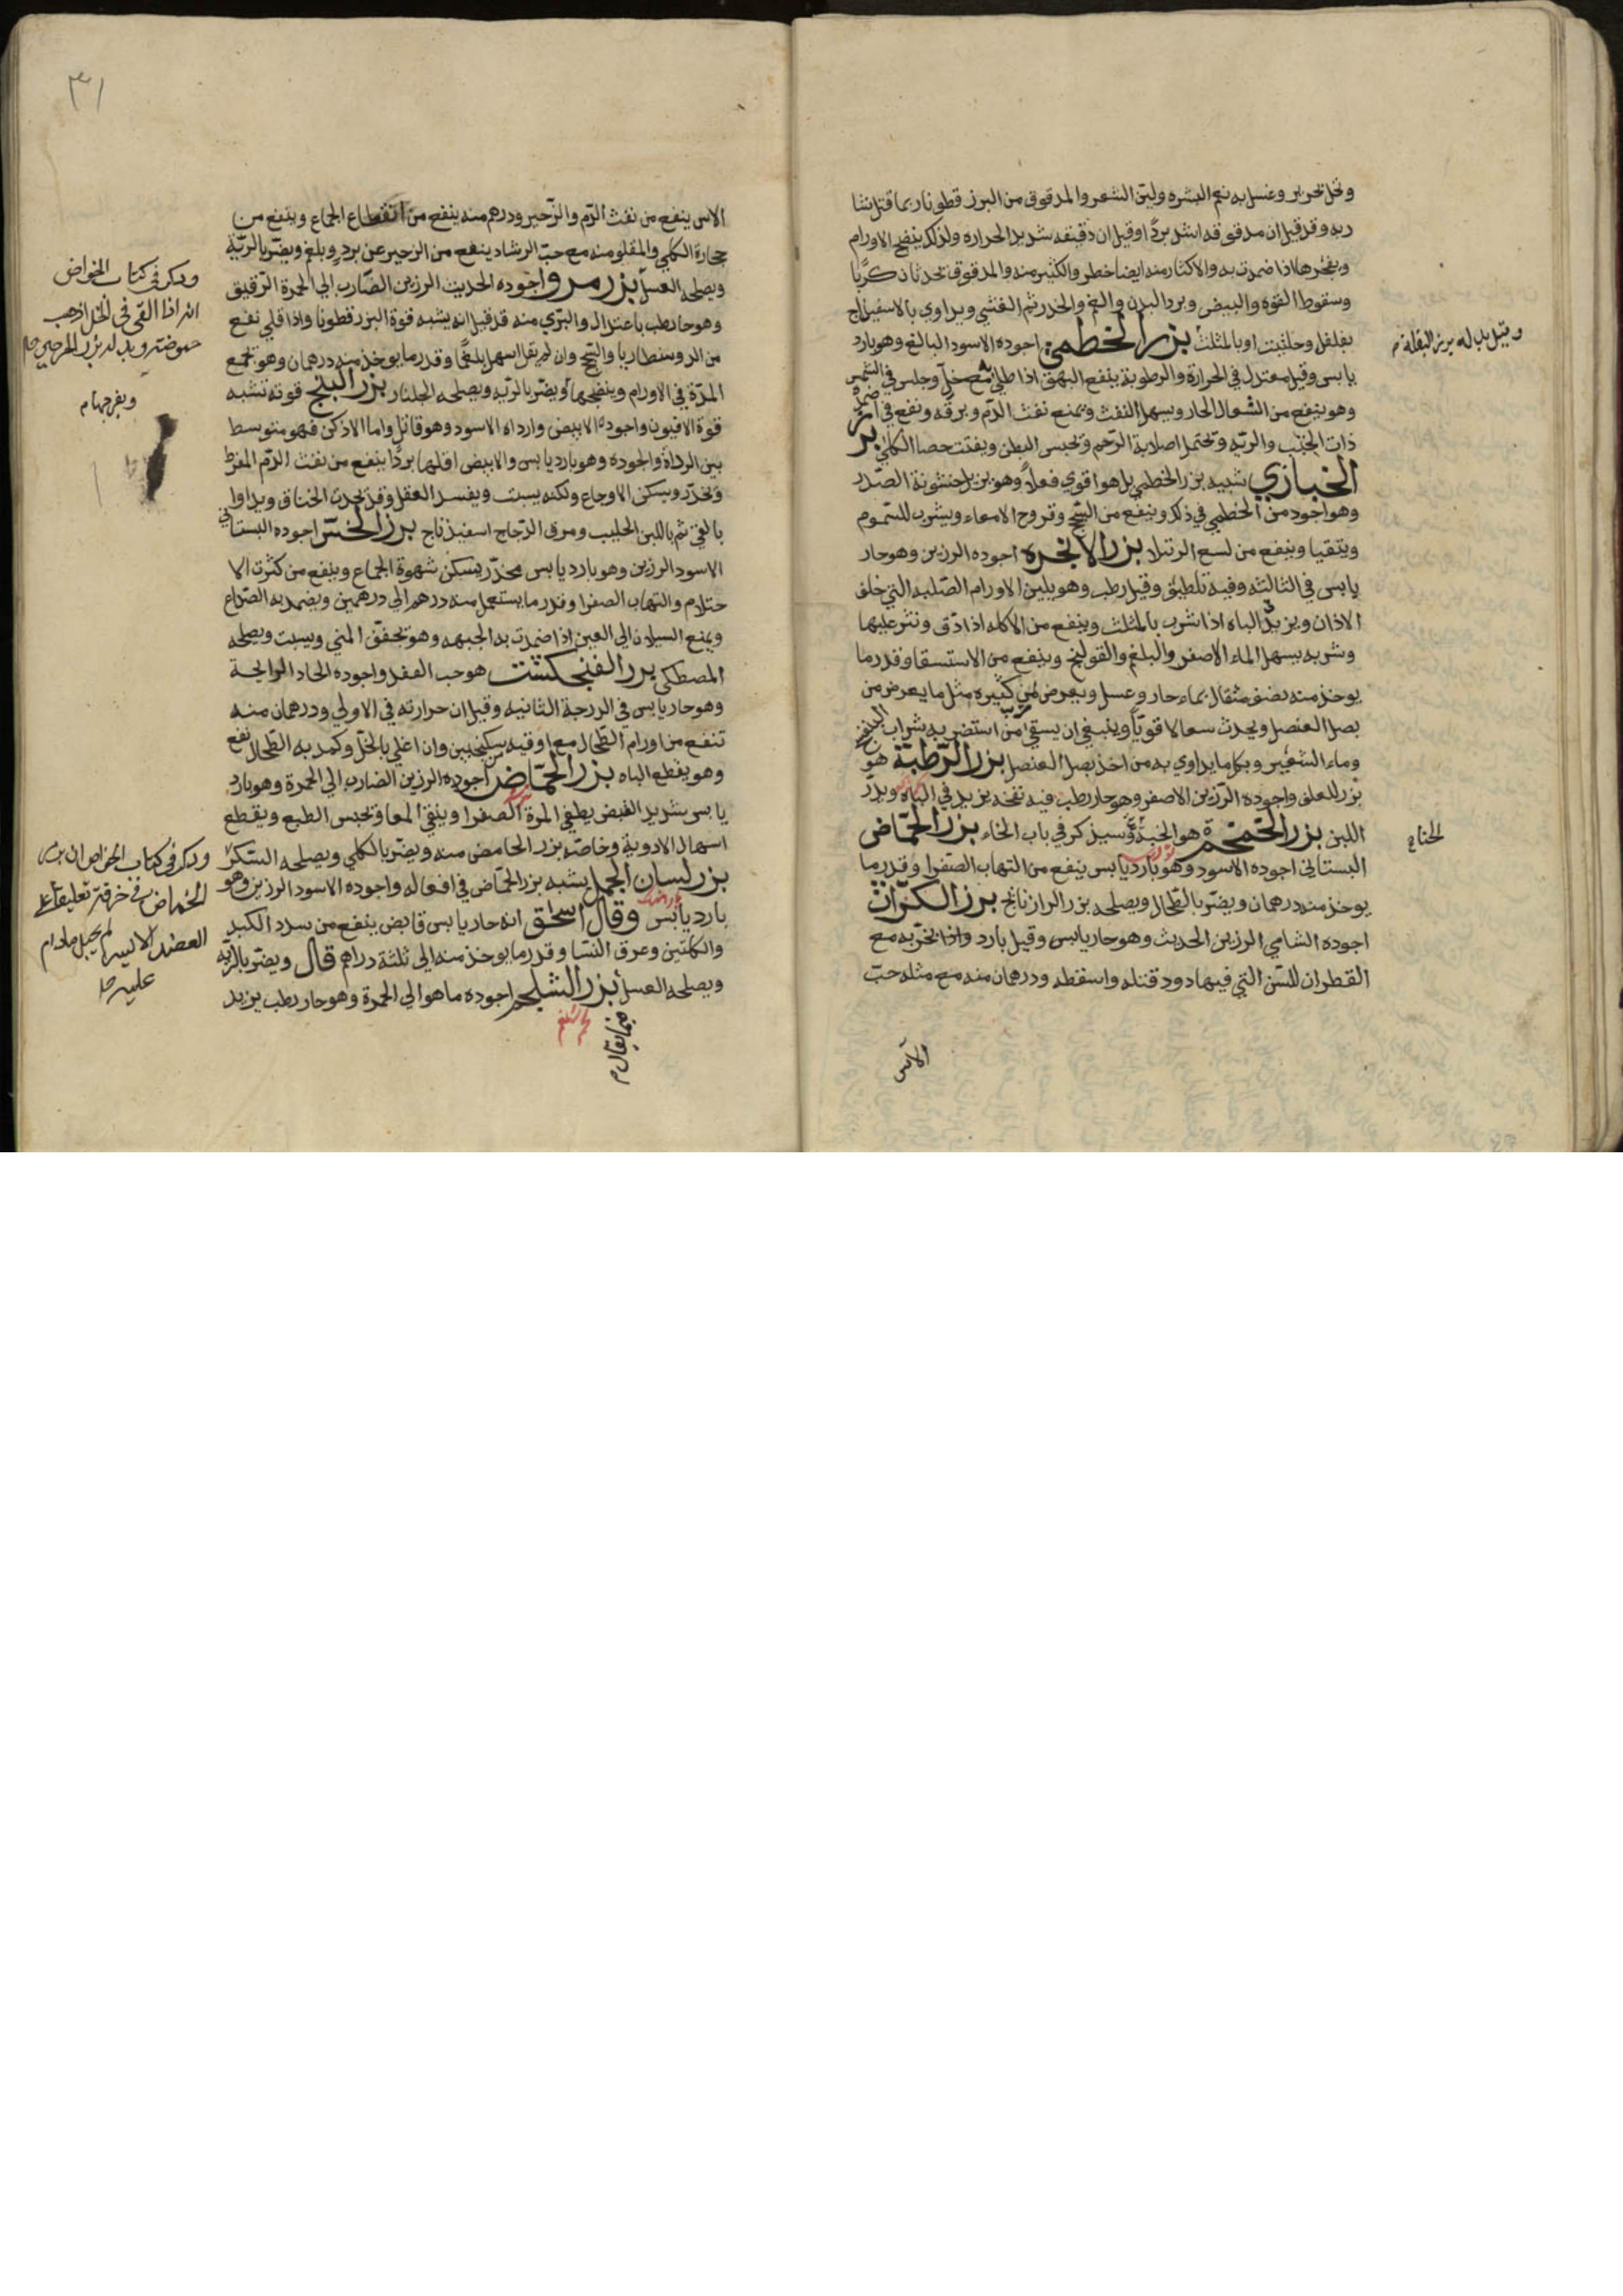 وخل خمر وغسل به نعم البشره ولين الشعر والمدقوق من البزر قطونا ربما قتل شا
ربه وقد قيل ان مدقوقه اشد بردا وقيل ان دقيقه شديد الحراره ولذلك ينضج الاورام
ويفجرها اذا ضمدت به والاكثار منه ايضا خطر والكثير منه والمدقوق يحدثان كربا
وسقوط القوه والنبض وبرد البدن والغم والخدر ثم الغشي ويداوي بالاسفيذباج
بفلفل وحلتيت اوبالمثلث بزر الخطمي اجوده الاسود البالغ وهو بارد
يابس وقيل معتدل في الحرارة والرطوبة ينفع البهق اذا طلي به مع خل وجلس في الشمس
وهو ينفع من السعال الحار ويسهل النفث ويمنع نفث الدم ونفع في
ذات الجنب والريه وتحتمل لصلابة الرحم وتحبس البطن ويفتت حصا الكلي بزر
الخبازي شبيه بزر الخطمي بل هو اقوي فعلا وهو يزيل خشونة الصدر
وهو اجود من الخطمي في ذلك وينفع من السحج وقروح الامعاء ويشرب للسموم
ويتقيا وينفع من لسع الرتيلا بزر الانجره اجوده الرزين وهو حار
يابس في الثالثه وفيه تلطيف وقيل رطب وهو يلين الاورام الصلبه التي خلف
الاذان ويزيد الباه اذا شرب بالمثلث وينفع من الاكله اذا دق ونثر عليها
وشربه يسهل الماء الاصفر والبلغم والقولنج وينفع من الاستسقا وقدر ما
يوخذ منه نصف مثقال بماء حار وعسل ويعرض لمن كثيره مثل ما يعرض من
بصل العنصل ويحدث سعالا قويا وينبغي ان يسقي من استضر به شراب البنفسج
وماء الشعير وبكل ما يداوي به من اخذ بصل العنصل بزر الرطبة هو
بزر للعلف واجوده الرزين الاصفر وهو حار رطب فيه نفخه يزيد في الباه ويدر
اللبن بزر الخمخم هو الخبة وسيذكر في باب الخاء بزر الحماض
البستاني اجوده الاسود وهو بارد يابس ينفع من التهاب الصفرا وقدر ما
يوخذ منه درهمان ويضر بالطحال ويصلحه بزر الرازيانج بزر الكراث
اجوده الشامي الرزين الحديث وهو حار يابس وقيل بارد واذا بخر به مع
القطران للسن التي فيها دود قتله واسقطه ودرهمان منه مع مثله حب
الآس
وقيل بدله بزر البقله م
٣١
الاس ينفع من نفث الدم والزحير ودرهم منه ينفع من انقطاع الجماع وينفع من
حجارة الكلي والمقلو منه مع حب الرشاد ينفع من الزحير عن برد وبلغم ويضر بالرية
ويصلحه العسل بزر مرو اجوده الحديث الرزين الضارب الي الحمرة الرقيق
وهو حار رطب باعتدال والبري منه قد قيل انه يشبه قوة البزر قطونا واذا قلي نفع
من الدوسنطاريا والسحج وان لم يقل اسهل بلغما وقدر ما يوخذ منه درهمان وهو يجمع
المدة في الاورام وينضجها ويضر بالريه ويصلحه الجلنار بزر البنج قوته تشبه
قوة الافيون واجوده الابيض وارداه الاسود وهو قاتل واما الاذكن فهو متوسط
بين الرداة والجوده وهو بارد يابس والابيض اقلها بردا ينفع من نفث الدم المفرط
وتخدر ويسكن الاوجاع ولكنه يسبت ويفسد العقل وقد يحدث الخناق ويداوا
بالقي ثم باللبن الحليب ومرق الدجاج اسفيذباج بزر الخس اجوده البستاني
الاسود الرزين وهو بارد يابس مخدر يسكن شهوة الجماع وينفع من كثرت الا
حتلام والتهاب الصفرا وقدر ما يستعمل منه درهم الي درهمين ويضمد به الصداع
ويمنع السيلان الي العين اذا ضمدت به الجبهه وهو يجفف المني ويسبت ويصلحه
المصطكي بزر الفنجكشت هو حب الفقد واجوده الحاد الرايحة
وهو حار يابس في الدرجة الثانيه وقيل ان حرارته في الاولي ودرهمان منه
تنفع من اورام الطحال مع اوقيه سكنجبين وان اغلي بالخل وكمد به الطحال نفع
وهو يقطع الباه بزر الحماض اجوده الرزين الضارب الي الحمرة وهو بارد
يابس شديد القبض يطفي المرة الصفرا وينقي المعا وتحبس الطبع ويقطع
اسهال الادوية وخاصة بزر الحامض منه ويضر بالكلي ويصلحه السكر
بزر لسان الحمل يشبه بزر الحماض في افعاله واجوده الاسود الرزين وهو
بارد يابس وقال اسحق انه حار يابس قابض ينفع من سدد الكبد
والكلتين وعرق النسا وقدر ما يوخذ منه الي ثلثة دراهم قال ويضر بالريه
ويصلحه العسل بزر الشلجم اجوده ما هو الي الحمرة وهو حار رطب يزيد
وذكر في كتاب الخواص
انه اذا القي في الخل اذهب
حموضته وبدله بزر
ويفرجها م
وذكر في كتاب الخواص ان بزر
الحماض في خرقة تعليقا علي
العضد الايسر لم يحبل مادام
عليه